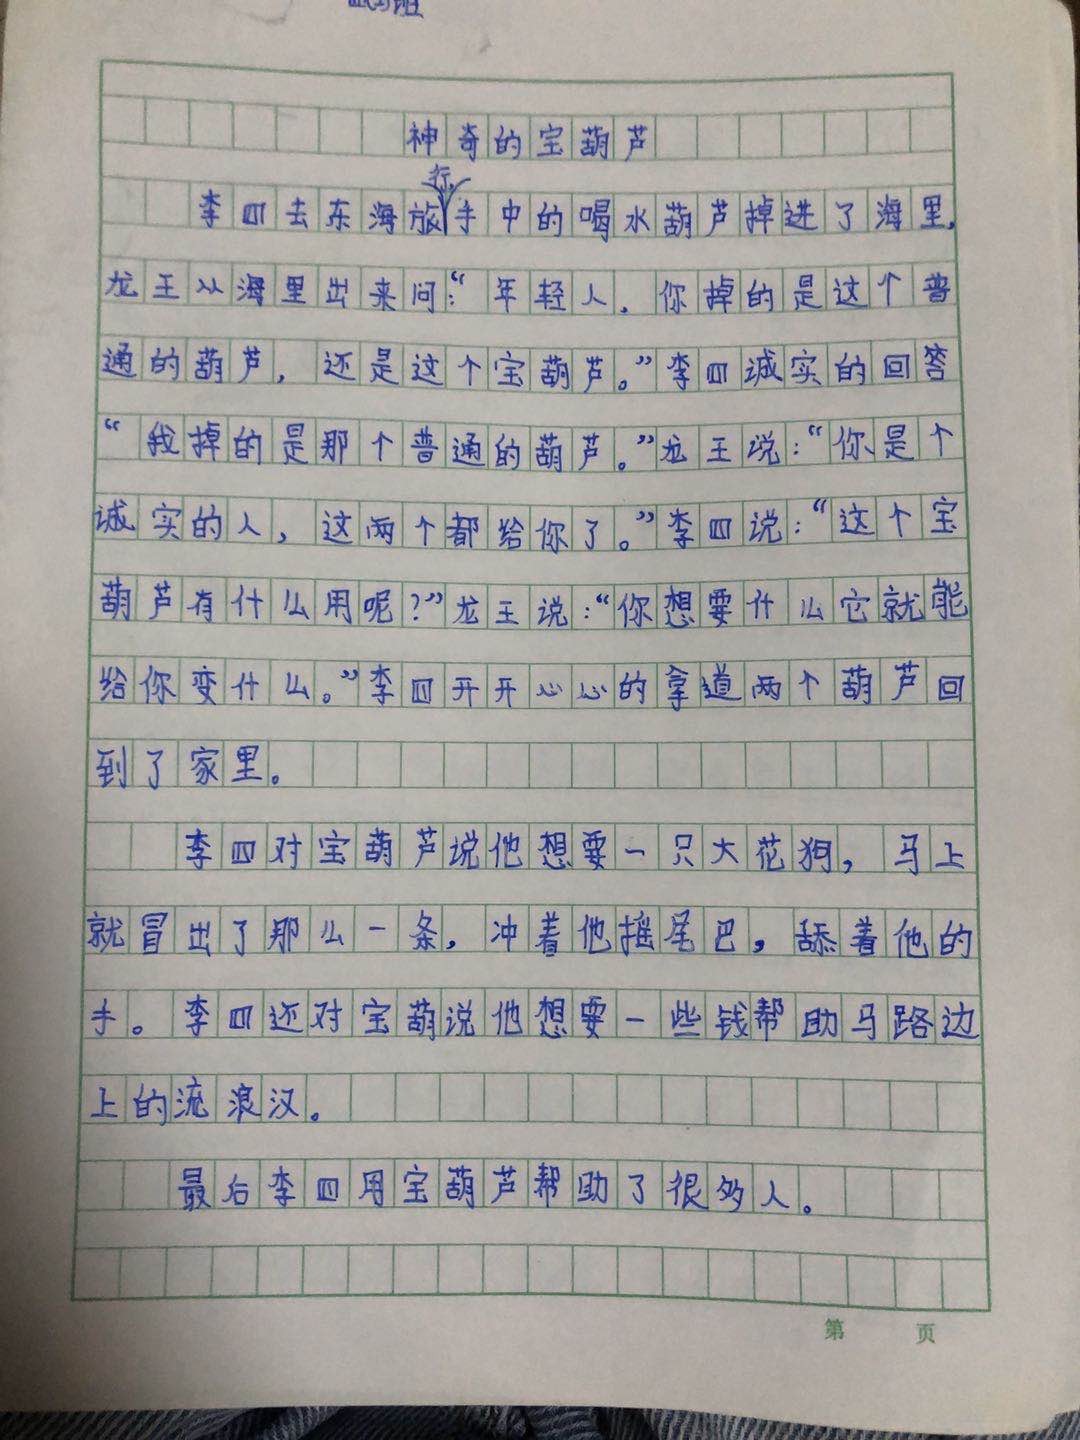 神奇的宝葫芦
李四去东海旅行手中的喝水葫芦掉进了海里,
龙王从海里出来问:“年轻人,你掉的是这个普
通的葫芦,还是这个宝葫芦。”李四诚实的回答
“我掉的是那个普通的葫芦。”龙王说:“你是个
诚实的人,这两个都给你了。”李四说:“这个宝
葫芦有什么用呢?”龙王说:“你想要什么它就能
给你变什么。”李四开开心心的拿道两个葫芦回
到了家里。
李四对宝葫芦说他想要一只大花狗,马上
就冒出了那么一条,冲着他摇尾巴,舔着他的
手。李四还对宝葫说他想要一些钱帮助马路边
上的流浪汉。
最后李四用宝葫芦帮助了很多人。
第 页